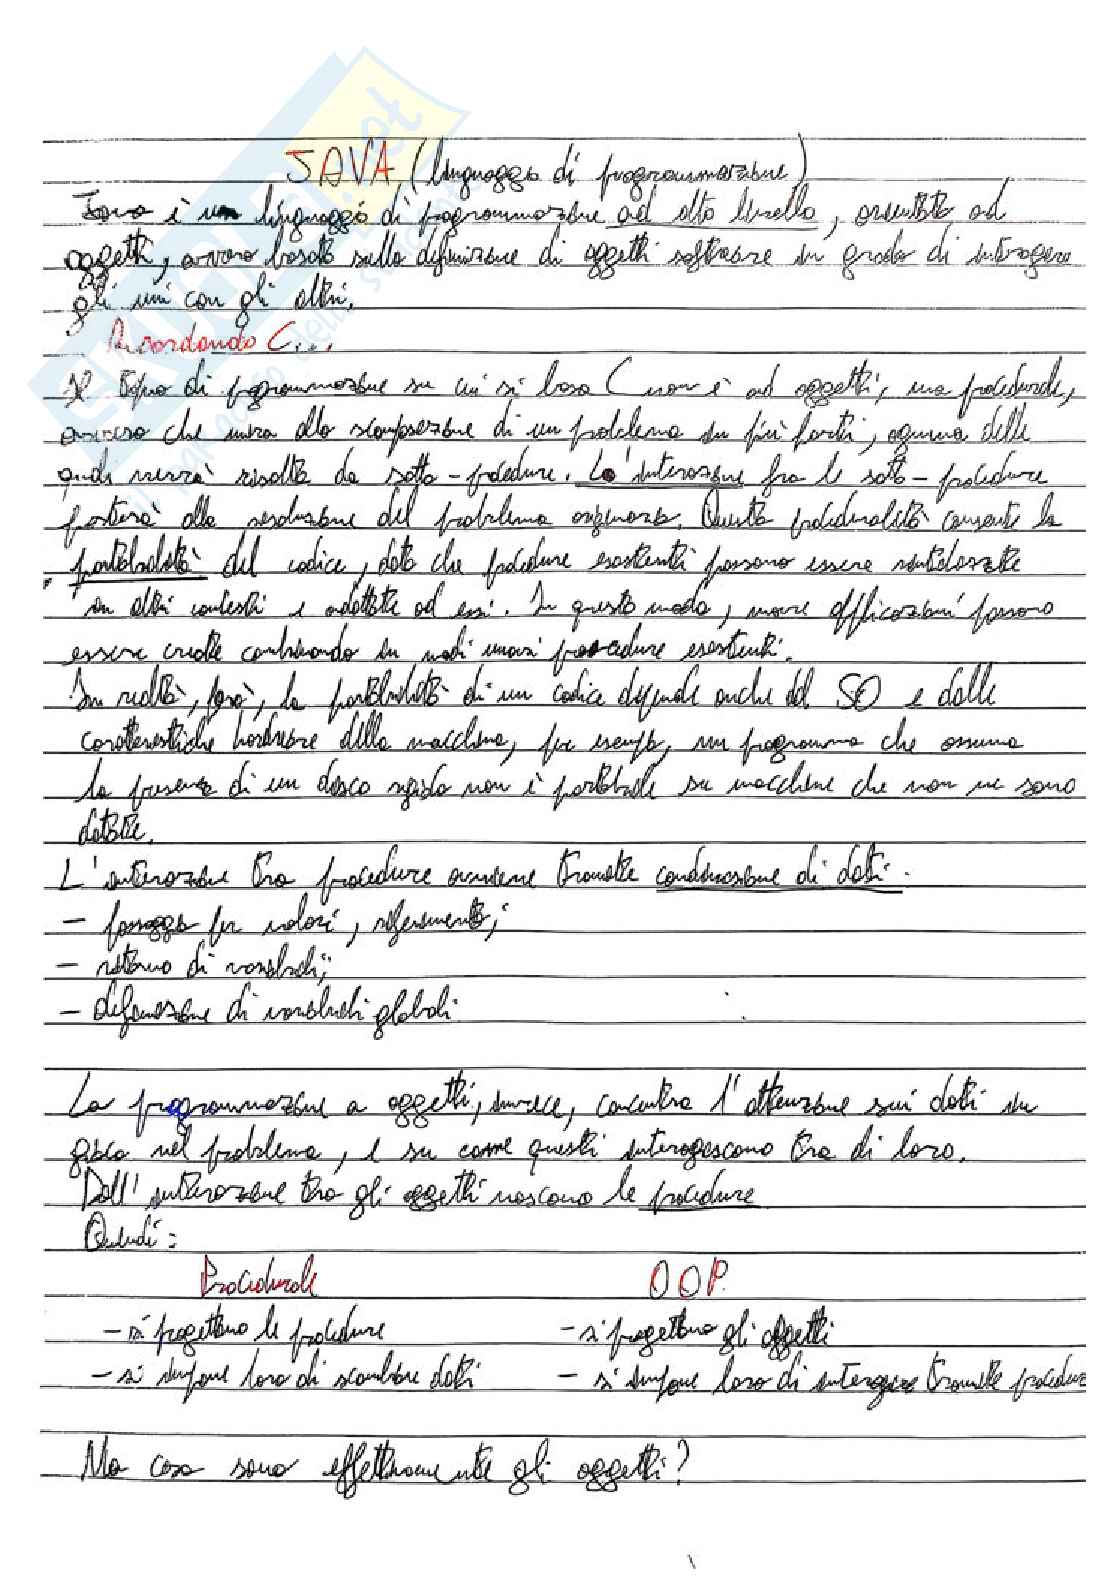 JAVA (linguaggio di programmazione)
Java è un linguaggio di programmazione ad alto livello, orientato ad
oggetti, ovvero basato sulla definizione di oggetti software in grado di interagire
gli uni con gli altri.
Ricordando C...
Il tipo di programmazione su cui si basa C non è ad oggetti, ma procedurale,
ovvero che mira alla scomposizione di un problema in più parti, ognuna delle
quali verrà risolta da sotto-procedure. L'interazione fra le sotto-procedure
porterà alla risoluzione del problema originario. Questa proceduralità consente la
portabilità del codice, dato che procedure esistenti possono essere riutilizzate
in altri contesti e adattate ad essi. In questo modo, nuove applicazioni possono
essere create combinando in modi nuovi procedure esistenti.
In realtà, però, la portabilità di un codice dipende anche dal SO e dalle
caratteristiche hardware della macchina, per esempio, un programma che assuma
la presenza di un disco rigido non è portabile su macchine che non ne sono
dotate.
L'interazione tra procedure avviene tramite condivisione di dati:
- passaggio per valori, riferimento;
- ritorno di variabili;
- definizione di variabili globali.
La programmazione a oggetti, invece, concentra l'attenzione sui dati in
gioco nel problema, e su come questi interagiscono tra di loro.
Dall'interazione tra gli oggetti nascono le procedure
Quindi:
Procedurale OOP
- si progettano le procedure - si progettano gli oggetti
- si impone loro di scambiare dati - si impone loro di interagire tramite procedure
Ma cosa sono effettivamente gli oggetti?